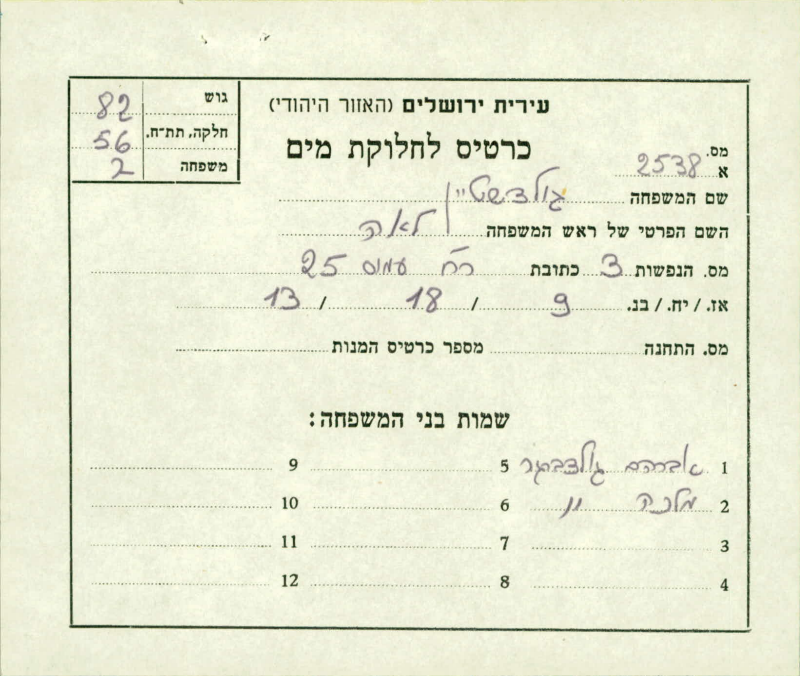 עירית ירושלים (האזור היהודי)
כרטיס לחלוקת מים
גוש 82
חלקה, תת־ח. 56
משפחה 2
מס. א 2538
שם המשפחה גולדשטיין
השם הפרטי של ראש המשפחה לאה
מס. הנפשות 3 כתובת רח' עמוס 25
אז. / יח. / בנ. 9 / 18 / 13
מס. התחנה מספר כרטיס המנות
שמות בני המשפחה:
1 אברהם גולדברגר 5 9
2 מלכה " 6 10
3 7 11
4 8 12